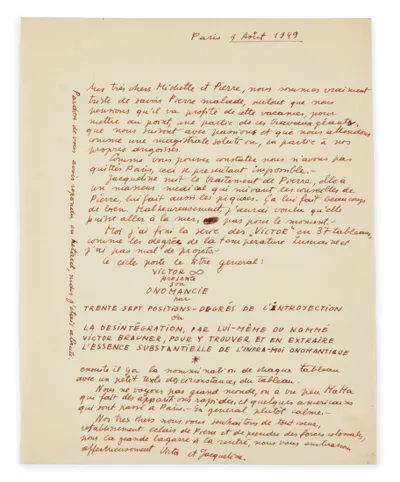 Paris 8 Août 1949
Mes très chers Michette et Pierre, nous sommes vraiment
triste de savoir Pierre malade, surtout que nous
pensions qu'il va profité de cette vacances, pour
mettre au point, une partie de ces travaux géants,
que nous suivont avec passion et que nous attendons
comme une magistrale solution, en partie à nos
propres angoisses.
Comme vous pouvez constater nous n'avons pas
quittés Paris, ceci se présentant impossible.-
Jacqueline suit le traitement de Pierre, elle a
un masseur medical qui suivant les conseilles de
Pierre, lui fait aussi les piqûres. Ça lui fait beaucoup
de bien. Malheureusement, j'aurais voulu qu'elle
puisse aller à la mer, pas pour le moment.-
Moi j'ai fini la serie des "Victor" en 37 tableaux,
comme les degrés de la temperature humaine
j'ai pas mal de projets-
le cicle porte le titre general:
VICTOR ∞
présente
son
ONOMANCIE
par
TRENTE SEPT POSITIONS-DEGRÉS DE L'INTROJECTION
ou
LA DESINTÉGRATION, PAR LUI-MÊME DU NOMMÉ
VICTOR BRAUNER, POUR Y TROUVER ET EN EXTRAIRE
L'ESSENCE SUBSTANTIELLE DE L'INFRA-MOI ONOMANTIQUE
*
ensuite il y a la nommination de chaque tableau
avec un petit texte des circonstances du tableau.
Nous ne voyons pas grand monde, on a vu peu Matta
qui fait des apparitions rapides, et quelques americains
qui sont passé à Paris.- En general plutôt calme.-
Nos très chers nous vous souhaitons de tout cœur,
rétablissement de Pierre et de prendre des forces colossales,
pour la grande bagarre à la rentré, nous vous embrassons
affectueusement Victor et Jacqueline.
Pardon de vous avoir repondu en retard, nous